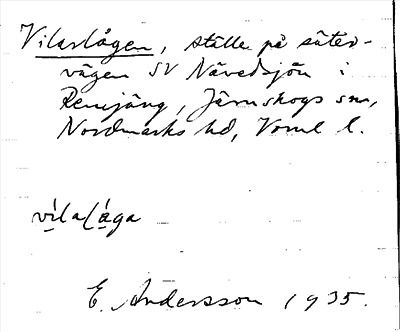 Vilarlågen, ställe på säter-
vägen SV Nävedsjön i
Remjäng, Järnskogs sn,
Nordmarks hd, Vrml l.
vílalǻga
E. Andersson 1935.